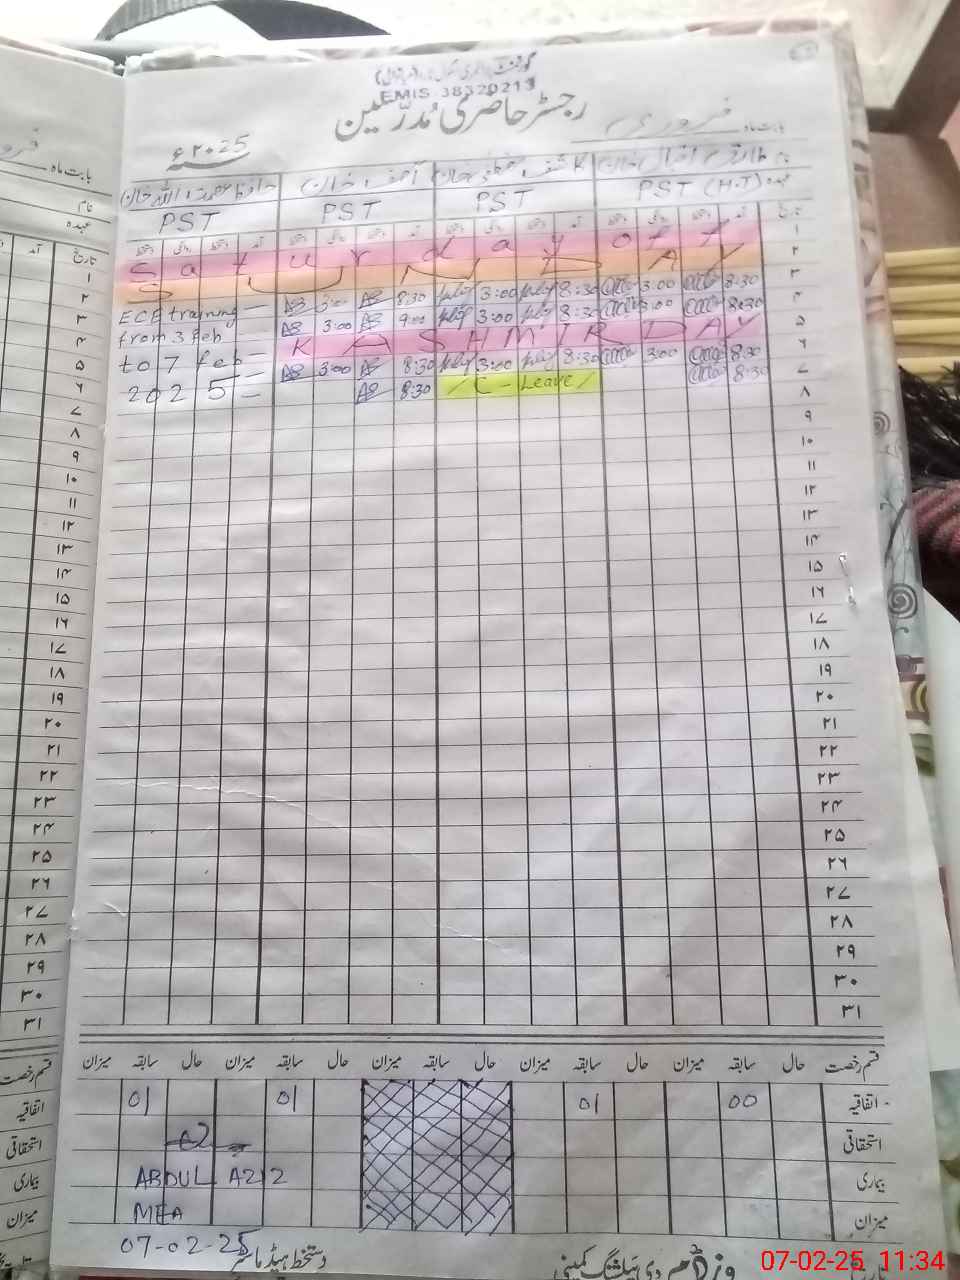 EMIS 38320213
رجسٹر حاضری مُدرّسین
بابت ماہ فروری
۲۰25ء
طارق اقبال خان
آصف خان
PST (H.T)
PST
PST
PST
تاریخ
Saturday off
SUNDAY
ECE training
from 3 feb
to 7 feb
2025
3:00 8:30 3:00 8:30 3:00 8:30
3:00 9:00 3:00 8:30 3:00 8:30
KASHMIR DAY
3:00 8:30 3:00 8:30 3:00 8:30
8:30 / C - Leave / 8:30
۱
۲
۳
۴
۵
۶
۷
۸
۹
۱۰
۱۱
۱۲
۱۳
۱۴
۱۵
۱۶
۱۷
۱۸
۱۹
۲۰
۲۱
۲۲
۲۳
۲۴
۲۵
۲۶
۲۷
۲۸
۲۹
۳۰
۳۱
قسم رخصت حال سابقہ میزان حال سابقہ میزان حال سابقہ میزان حال سابقہ میزان
اتفاقیہ 00 01 01 01
استحقاقی
بیماری
میزان
ABDUL AZIZ
MEA
07-02-25
دستخط ہیڈ ماسٹر
07-02-25 11:34
بابت ماہ
نام
عہدہ
تاریخ
آمد
۱
۲
۳
۴
۵
۶
۷
۸
۹
۱۰
۱۱
۱۲
۱۳
۱۴
۱۵
۱۶
۱۷
۱۸
۱۹
۲۰
۲۱
۲۲
۲۳
۲۴
۲۵
۲۶
۲۷
۲۸
۲۹
۳۰
۳۱
قسم رخصت
اتفاقیہ
استحقاقی
بیماری
میزان